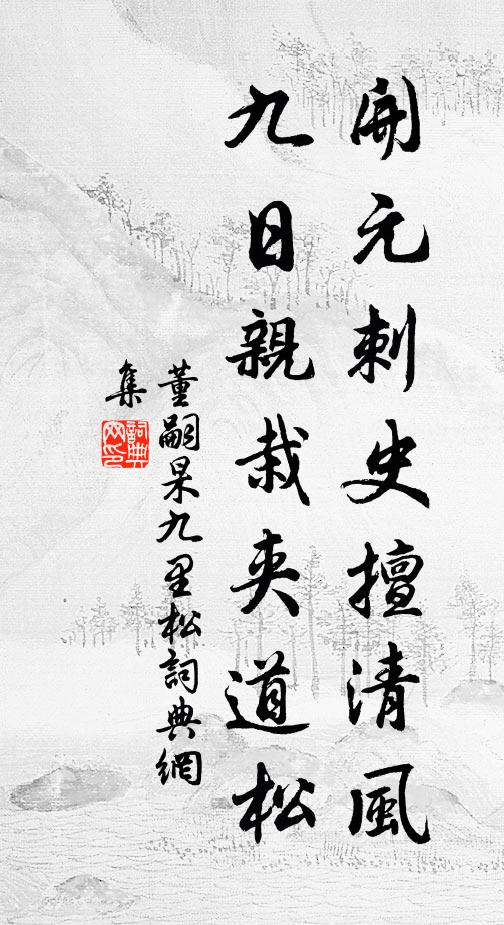 開元刺史擅清風
九日親栽夾道松
董嗣杲九里松詞典網
集
詞典
网印